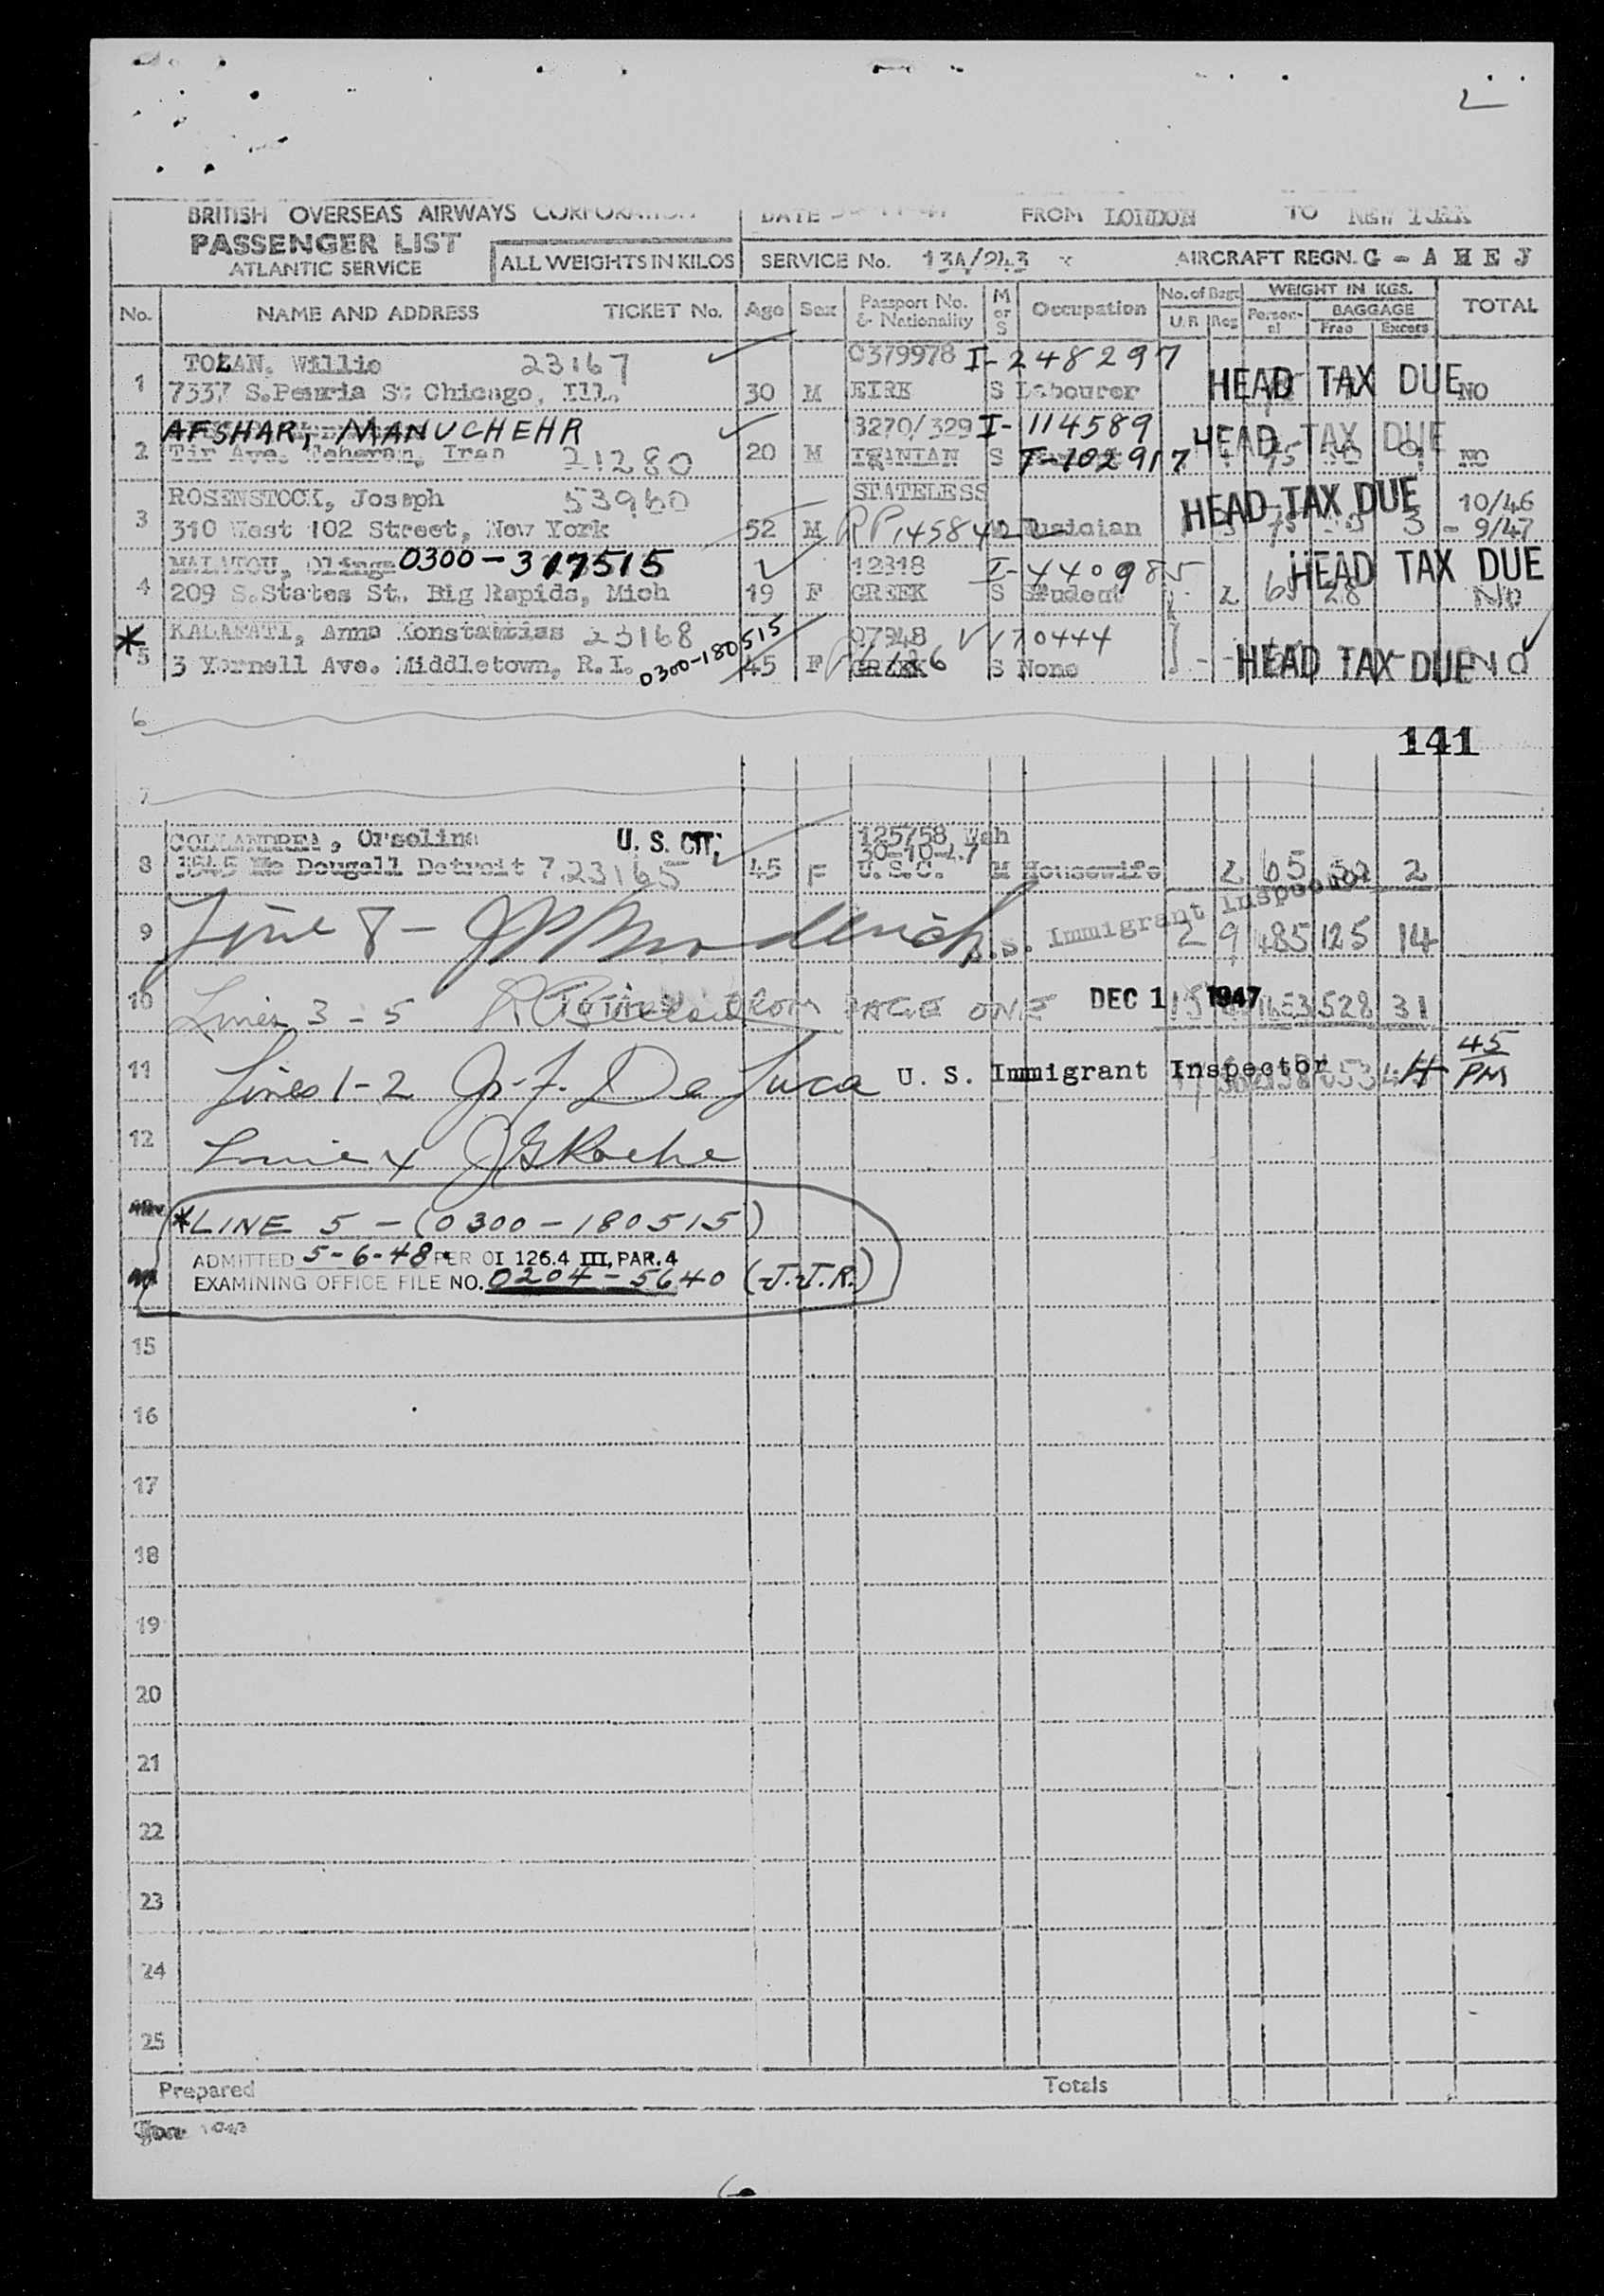 BRITISH OVERSEAS AIRWAYS CORPORATION
DATE
FROM LONDON TO NEW YORK
PASSENGER LIST
ATLANTIC SERVICE
ALL WEIGHTS IN KILOS
SERVICE No. 13A/243
AIRCRAFT REGN. G - A H E J
No. NAME AND ADDRESS TICKET No. Age Sex Passport No. & Nationality M or S Occupation No. of Bags U/R Reg WEIGHT IN KGS. Person-al BAGGAGE Free Excess TOTAL
1 Willie 23167 0379978 I-248297
7337 S. St Chicago, Ill. 30 M EIRE S Labourer HEAD TAX DUE NO
2 AFSHAR, MANUCHEHR 3270/329 I-114589
Tir Ave. Teheran, Iran 21280 20 M IRANIAN S T-102917 HEAD TAX DUE NO
3 ROSENSTOCK, Joseph 53960 STATELESS 10/46
310 West 102 Street, New York 52 M RP145842 Musician HEAD TAX DUE 3 - 9/47
4 0300-317515 12818 I-440985 HEAD TAX DUE
209 S. States St. Big Rapids, Mich 19 F GREEK S Student 2 28 No
* 5 KALAFATI, Anna 23168 0300-180515 07948 170444
3 Ave. Middletown, R.I. 45 F GREEK S None HEAD TAX DUE NO
6
141
7
8 COLLANDREA, Orsolina U. S. CIT. 125758 Wah
30-10-47
Mc Dougall Detroit 7 23165 45 F U.S.C. M Housewife 2 65 2
9 Line 8 - U.S. Immigrant Inspector 2 9 485 125 14
10 Lines 3 - 5 FROM PAGE ONE DEC 1 1947 528 31
11 Lines 1-2 De Luca U. S. Immigrant Inspector 45 PM
12 Line 4 J G Roche
* LINE 5 - (0300-180515)
ADMITTED 5-6-48 PER OI 126.4 III, PAR. 4
EXAMINING OFFICE FILE NO. 0204-5640 (J.J.R.)
15
16
17
18
19
20
21
22
23
24
25
Prepared Totals